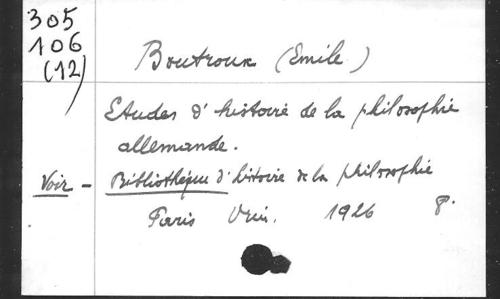 305
106
(12)
Boutroux (Emile)
Etudes d'histoire de la philosophie
allemande.
Voir - Bibliothèque d'histoire de la philosophie
Paris Vrin. 1926 8°.